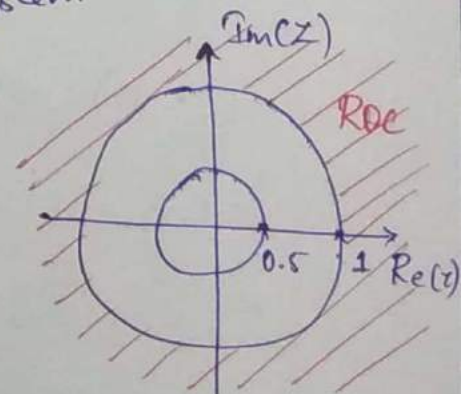 Im(Z)
ROC
0.5 1 Re(z)